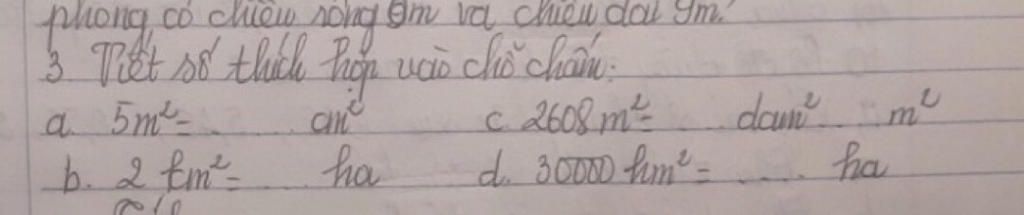 phòng có chiều rộng 6m và chiều dài 9m.
3 Viết số thích hợp vào chỗ chấm:
a. 5m²= ... cm² c. 2608m²= ... dam² ... m²
b. 2 km²= ... ha d. 30000 hm²= ..... ha